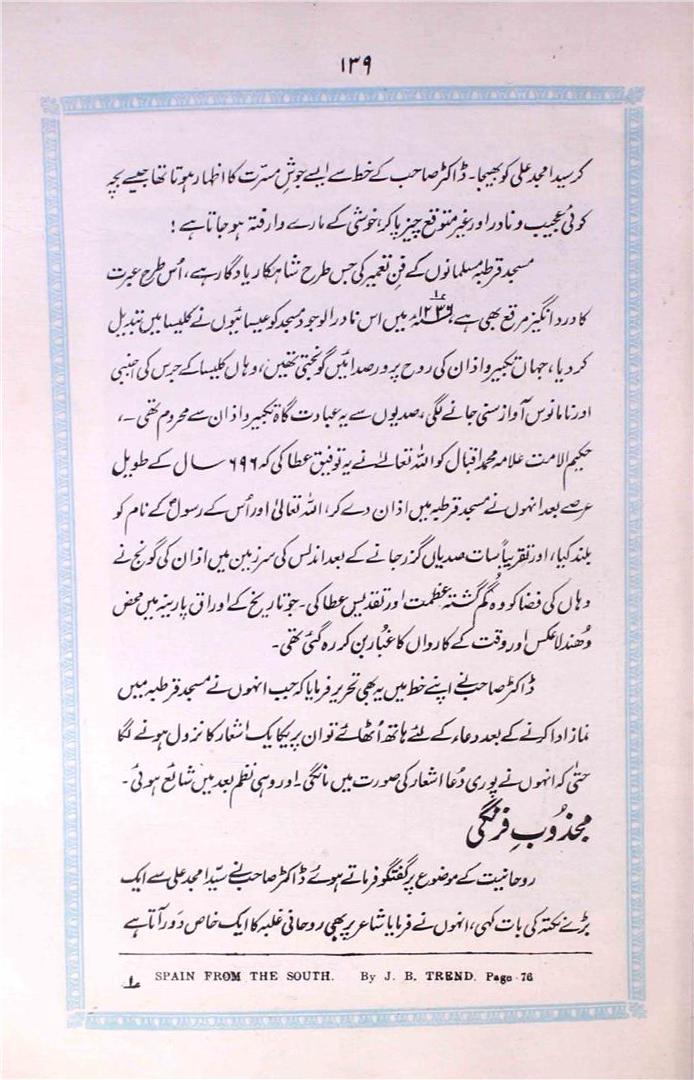 ۱۳۹
کر سید امجد علی کو بھیجا۔ ڈاکٹر صاحب کے خط سے ایسے جوشِ مسرّت کا اظہار ہوتا تھا جیسے بچہ
کوئی عجیب و نادر اور غیر متوقع چیز پا کر، خوشی کے مارے وارفتہ ہو جاتا ہے!
مسجد قرطبہ مسلمانوں کے فنِ تعمیر کی جس طرح شاہکار یادگار ہے، اُس طرح عبرت
کا درد انگیز مرقع بھی ہے، ۱۲۳۶ء؁ میں اس نادر الوجود مسجد کو عیسائیوں نے کلیسا میں تبدیل
کر دیا، جہاں تکبیر و اذان کی روح پرور صدائیں گونجتی تھیں، وہاں کلیسا کے جرس کی اجنبی
اور نامانوس آواز سنی جانے لگی، صدیوں سے یہ عبادت گاہ تکبیر و اذان سے محروم تھی ۔،
حکیم الامت علامہ محمد اقبال کو اللہ تعالیٰ نے یہ توفیق عطا کی کہ ۶۹۶ سال کے طویل
عرصے بعد انہوں نے مسجد قرطبہ میں اذان دے کر، اللہ تعالیٰ اور اُس کے رسولؐ کے نام کو
بلند کیا، اور تقریباً سات صدیاں گزر جانے کے بعد اندلس کی سرزمین میں اذان کی گونج نے
وہاں کی فضا کو وہ گم گشتہ عظمت اور تقدیس عطا کی۔ جو تاریخ کے اوراقِ پارینہ میں محض
دھندلا عکس اور وقت کے کارواں کا غبار بن کر رہ گئی تھی۔
ڈاکٹر صاحب نے اپنے خط میں یہ بھی تحریر فرمایا کہ جب انہوں نے مسجد قرطبہ میں
نماز ادا کرنے کے بعد دعاء کے لئے ہاتھ اُٹھائے تو ان پر یکایک اشعار کا نزول ہونے لگا
حتیٰ کہ انہوں نے پوری دُعا اشعار کی صورت میں مانگی۔ اور وہی نظم بعد میں شائع ہوئی۔
مجذُوبِ فرنگی
روحانیت کے موضوع پر گفتگو فرماتے ہوئے ڈاکٹر صاحب نے سیّد امجد علی سے ایک
بڑے نکتہ کی بات کہی، انہوں نے فرمایا شاعر پر بھی روحانی غلبہ کا ایک خاص دَور آتا ہے
؁۱ SPAIN FROM THE SOUTH. By J. B. TREND. Page 76